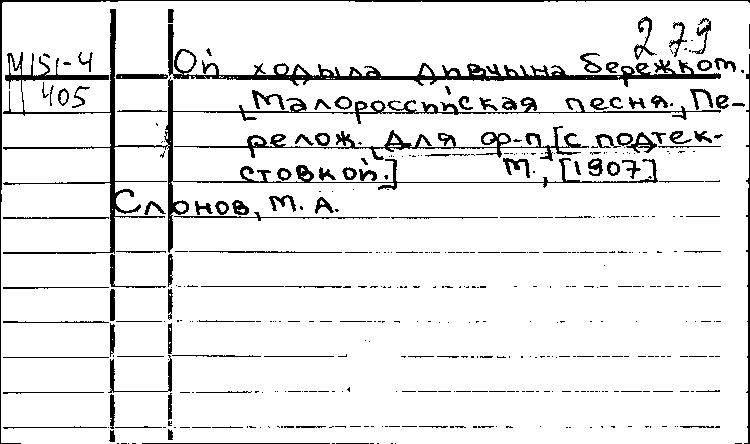 279
М151-4
405
Ой ходыла дивчына бережком.
Малороссийская песня. Пе-
релож. для ф-п. [с подтек-
стовкой.] М., [1907]
Слонов, М. А.